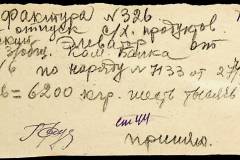 фактура № 326
отпуск с/х. продуктов.
Элеватор от
Ком. Банка
/6 по наряду № 7133 от 27/
в = 6200 клр. шесть тысяч
ст 44
пришло.